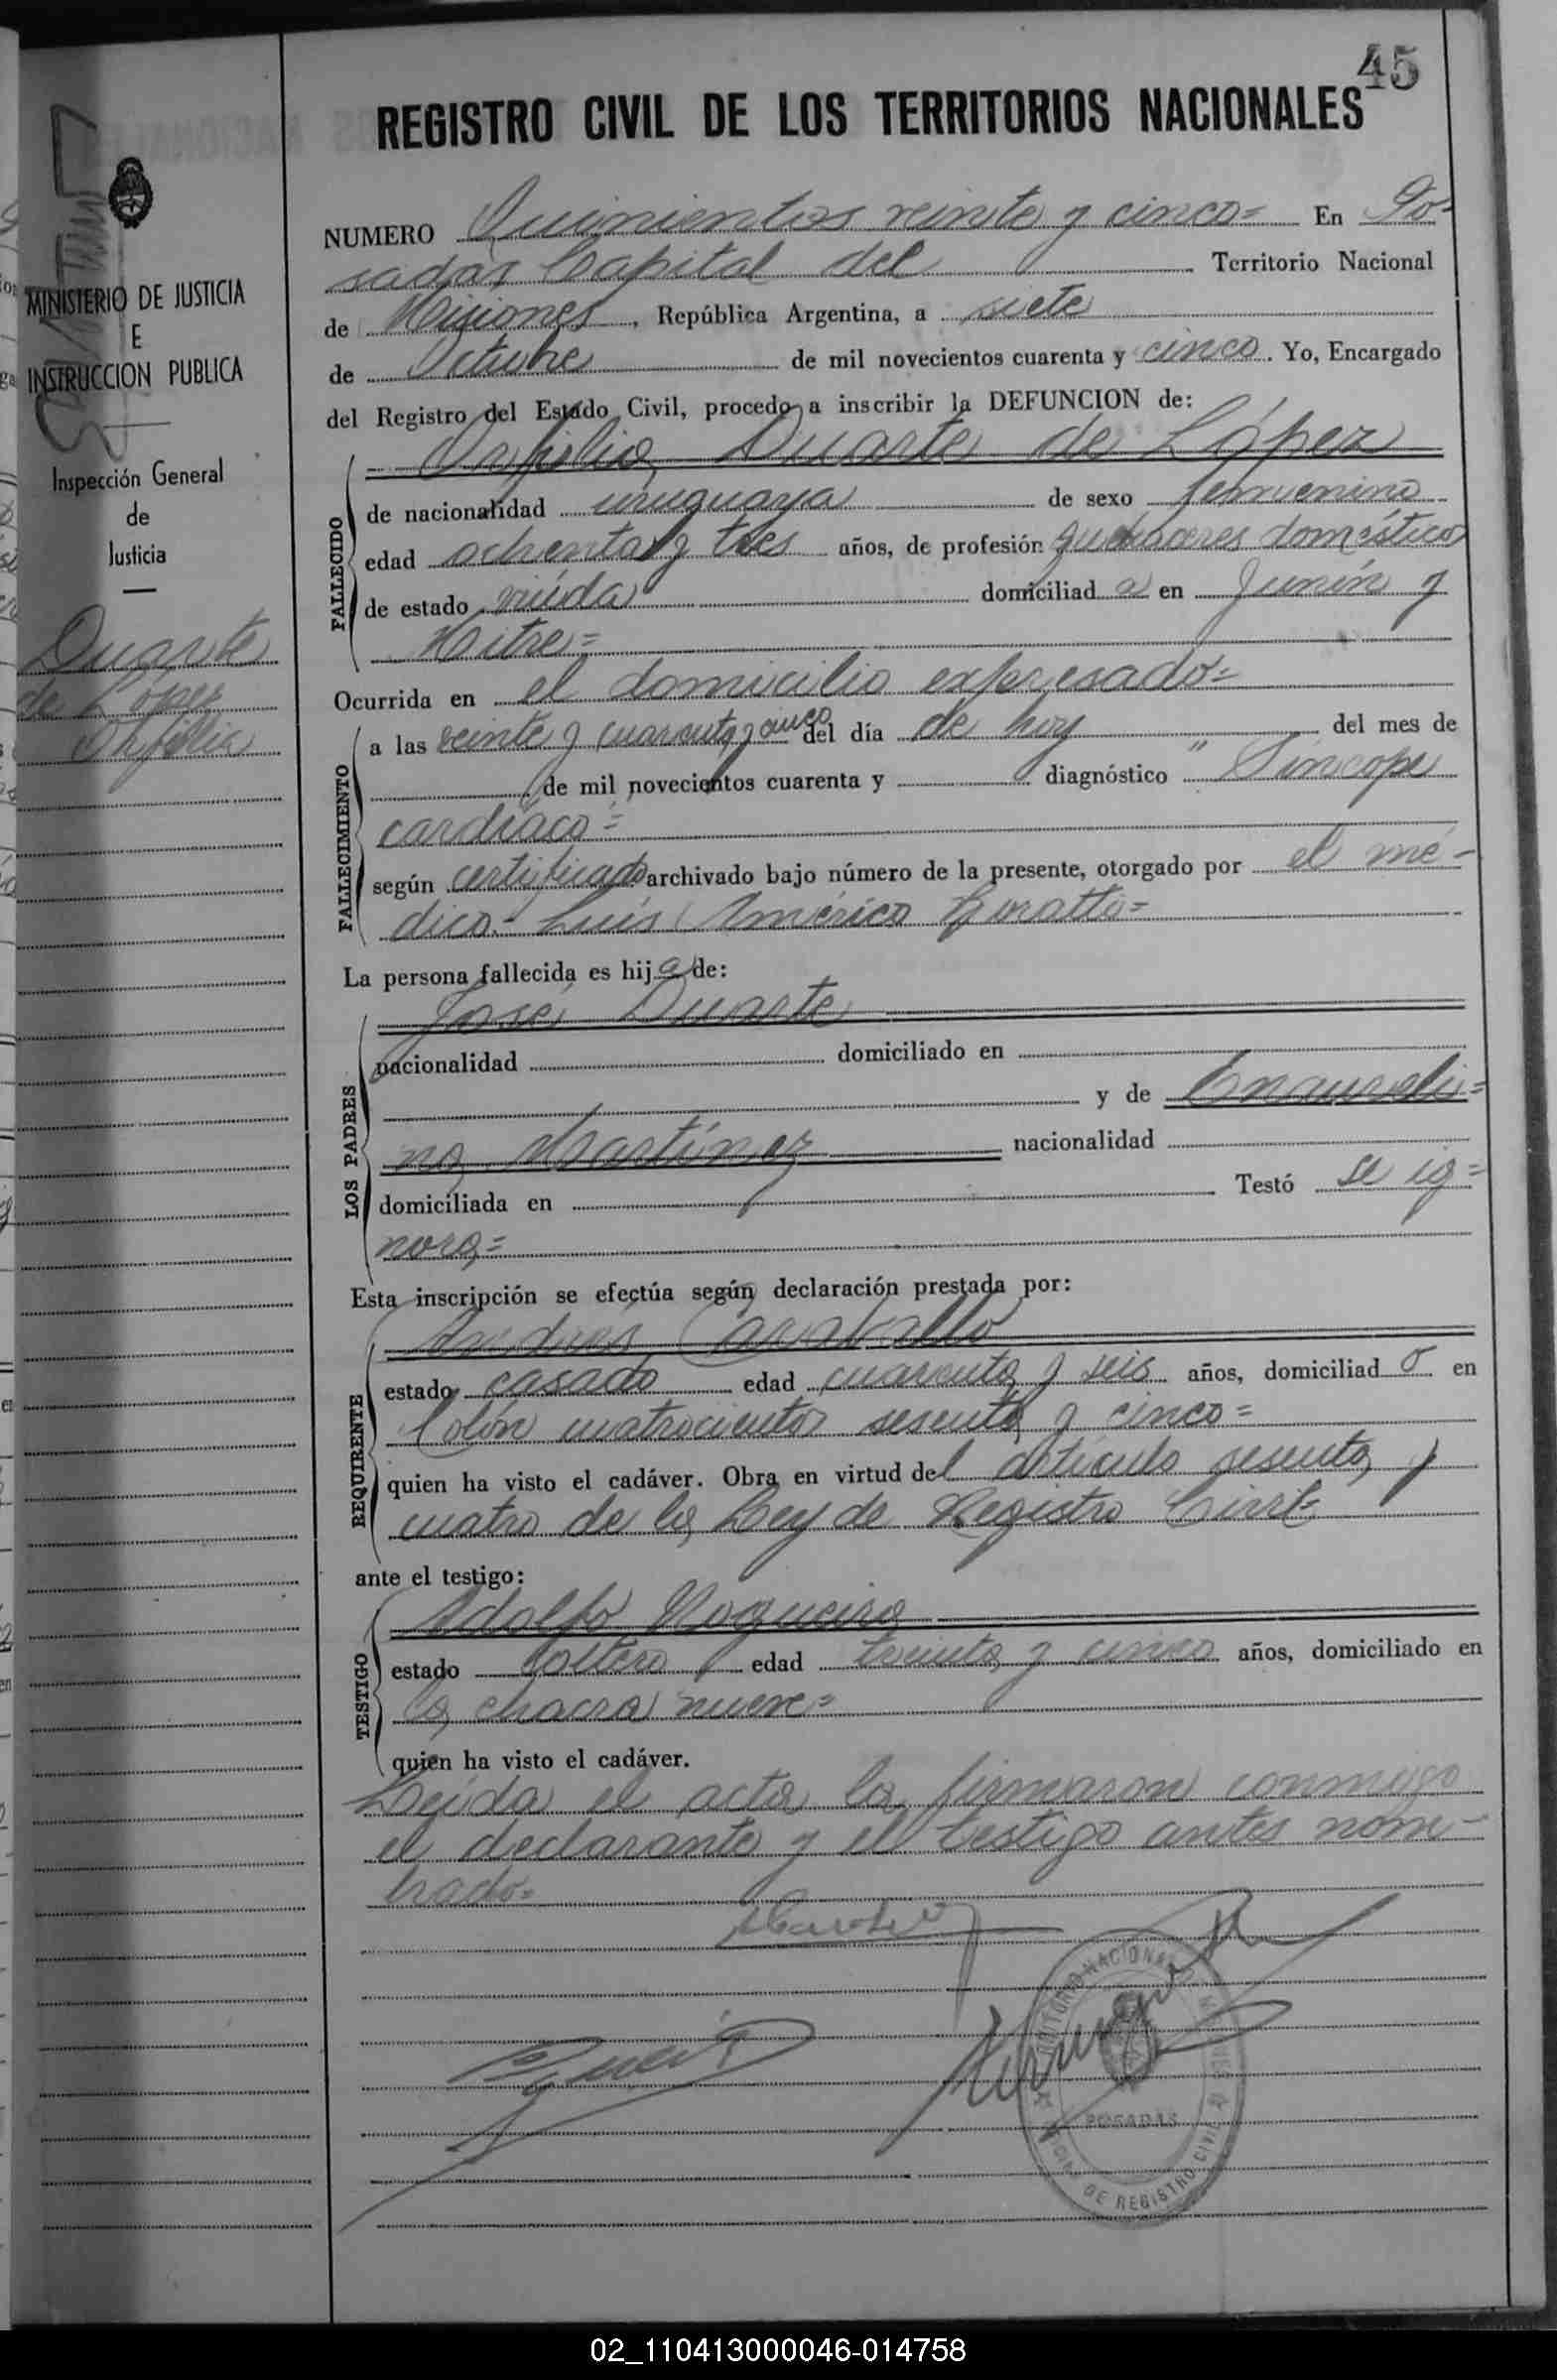 45
REGISTRO CIVIL DE LOS TERRITORIOS NACIONALES
MINISTERIO DE JUSTICIA
E
INSTRUCCION PUBLICA
Inspección General
de
Justicia
Duarte
de López
NUMERO Quinientos veinte y cinco= En Po-
sadas Capital del Territorio Nacional
de Misiones, República Argentina, a siete
de Octubre de mil novecientos cuarenta y cinco. Yo, Encargado
del Registro del Estado Civil, procedo a inscribir la DEFUNCION de:
Duarte de López
FALLECIDO
de nacionalidad uruguaya de sexo femenino
edad ochenta y tres años, de profesión quehaceres domésticos
de estado viuda domiciliad a en Junín y
Mitre=
Ocurrida en el domicilio expresado=
FALLECIMIENTO
a las veinte y cuarenta y cinco del día de hoy del mes de
de mil novecientos cuarenta y diagnóstico "Síncope
cardíaco=
según certificado archivado bajo número de la presente, otorgado por el mé-
dico Luis Américo
La persona fallecida es hij a de:
LOS PADRES
José Duarte
nacionalidad domiciliado en
y de
na Martínez nacionalidad
domiciliada en Testó se ig=
nora=
Esta inscripción se efectúa según declaración prestada por:
REQUIRENTE
Andrés Carvallo
estado casado edad cuarenta y seis años, domiciliad o en
Colón cuatrocientos sesenta y cinco=
quien ha visto el cadáver. Obra en virtud del artículo sesenta y
cuatro de la Ley de Registro Civil=
ante el testigo:
TESTIGO
Adolfo Nogueira
estado soltero edad treinta y cinco años, domiciliado en
la chacra nueve=
quien ha visto el cadáver.
Leída el acta la firmaron conmigo
el declarante y el testigo antes nom-
brado=
POSADAS
DE REGISTRO CIVIL
02_110413000046-014758